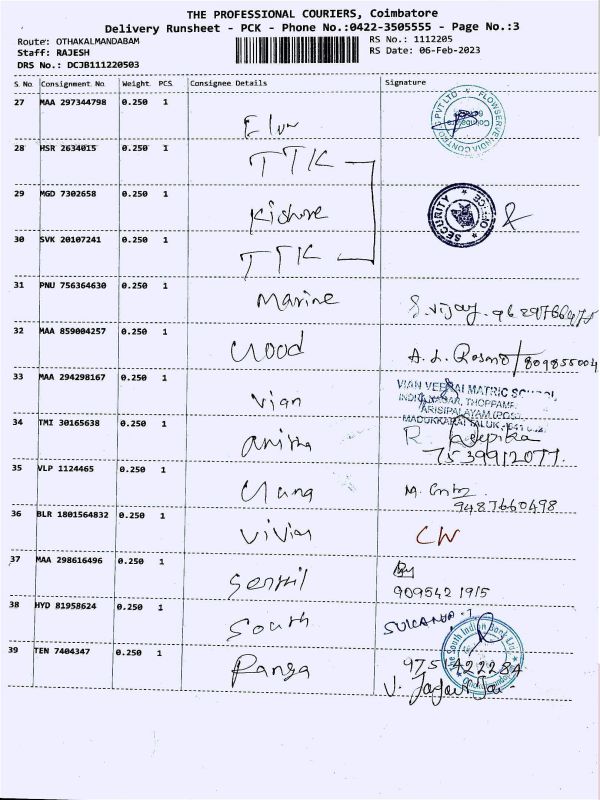 THE PROFESSIONAL COURIERS, Coimbatore
Delivery Runsheet - PCK - Phone No.:0422-3505555 - Page No.:3
Route: OTHAKALMANDABAM RS No.: 1112205
Staff: RAJESH RS Date: 06-Feb-2023
DRS No.: DCJB111220503
S.No Consignment No. Weight PCS Consignee Details Signature
27 MAA 297344798 0.250 1
28 HSR 2634015 0.250 1 TTK
29 MGD 7302658 0.250 1 Kishore SECURITY OFFICE
30 SVK 20107241 0.250 1 TTK
31 PNU 756364630 0.250 1 Marine S. Vijay. 9629766475
32 MAA 859004257 0.250 1
33 MAA 294298167 0.250 1 Vian VIAN VEERAI MATRIC SCHOOL,
34 TMI 30165638 0.250 1 Anitha R. Deepika
7539912077.
35 VLP 1124465 0.250 1 M.
9487660498
36 BLR 1801564832 0.250 1 Vivian CW
37 MAA 298616496 0.250 1 Senthil
909542 1915
38 HYD 81958624 0.250 1 South The South Indian Bank Ltd
39 TEN 7404347 0.250 1 Ranga 9751422284